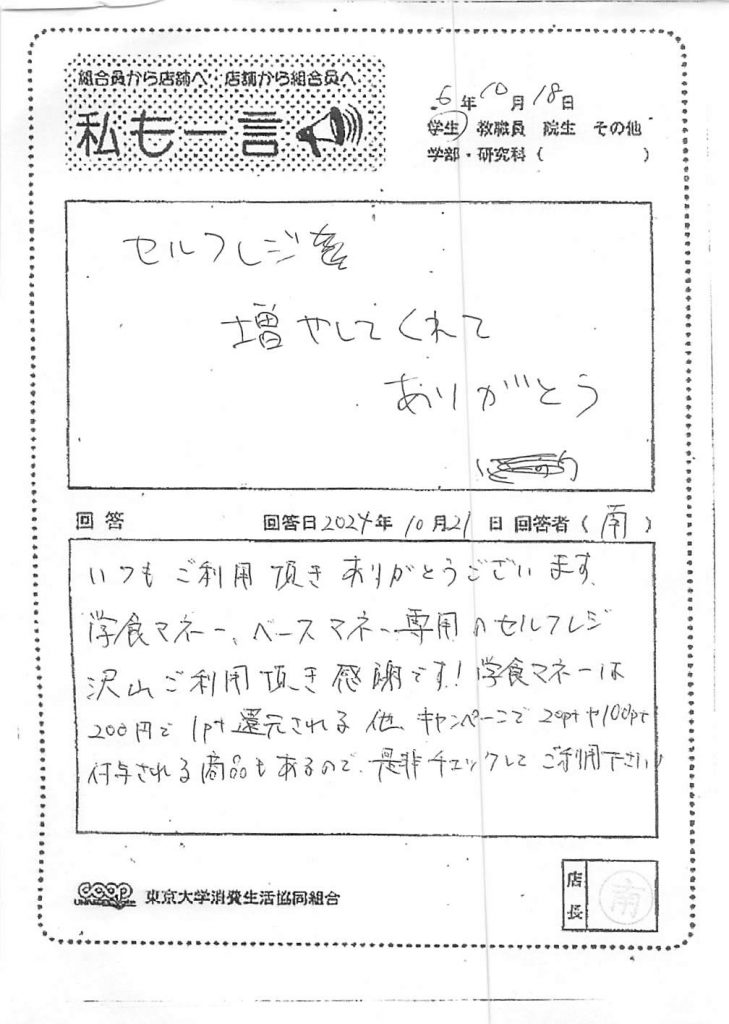 組合員から店舗へ・店舗から組合員へ
私も一言
6年10月18日
学生 教職員 院生 その他
学部・研究科( )
セルフレジを
増やしてくれて
ありがとう
回答 回答日2024年10月21日 回答者(南)
いつもご利用頂きありがとうございます。
学食マネー、ベースマネー専用のセルフレジ
沢山ご利用頂き感謝です!学食マネーは
200円で1pt還元される他、キャンペーンで20ptや100pt
付与される商品もあるので、是非チェックしてご利用下さい!
coop 東京大学消費生活協同組合
店長 南